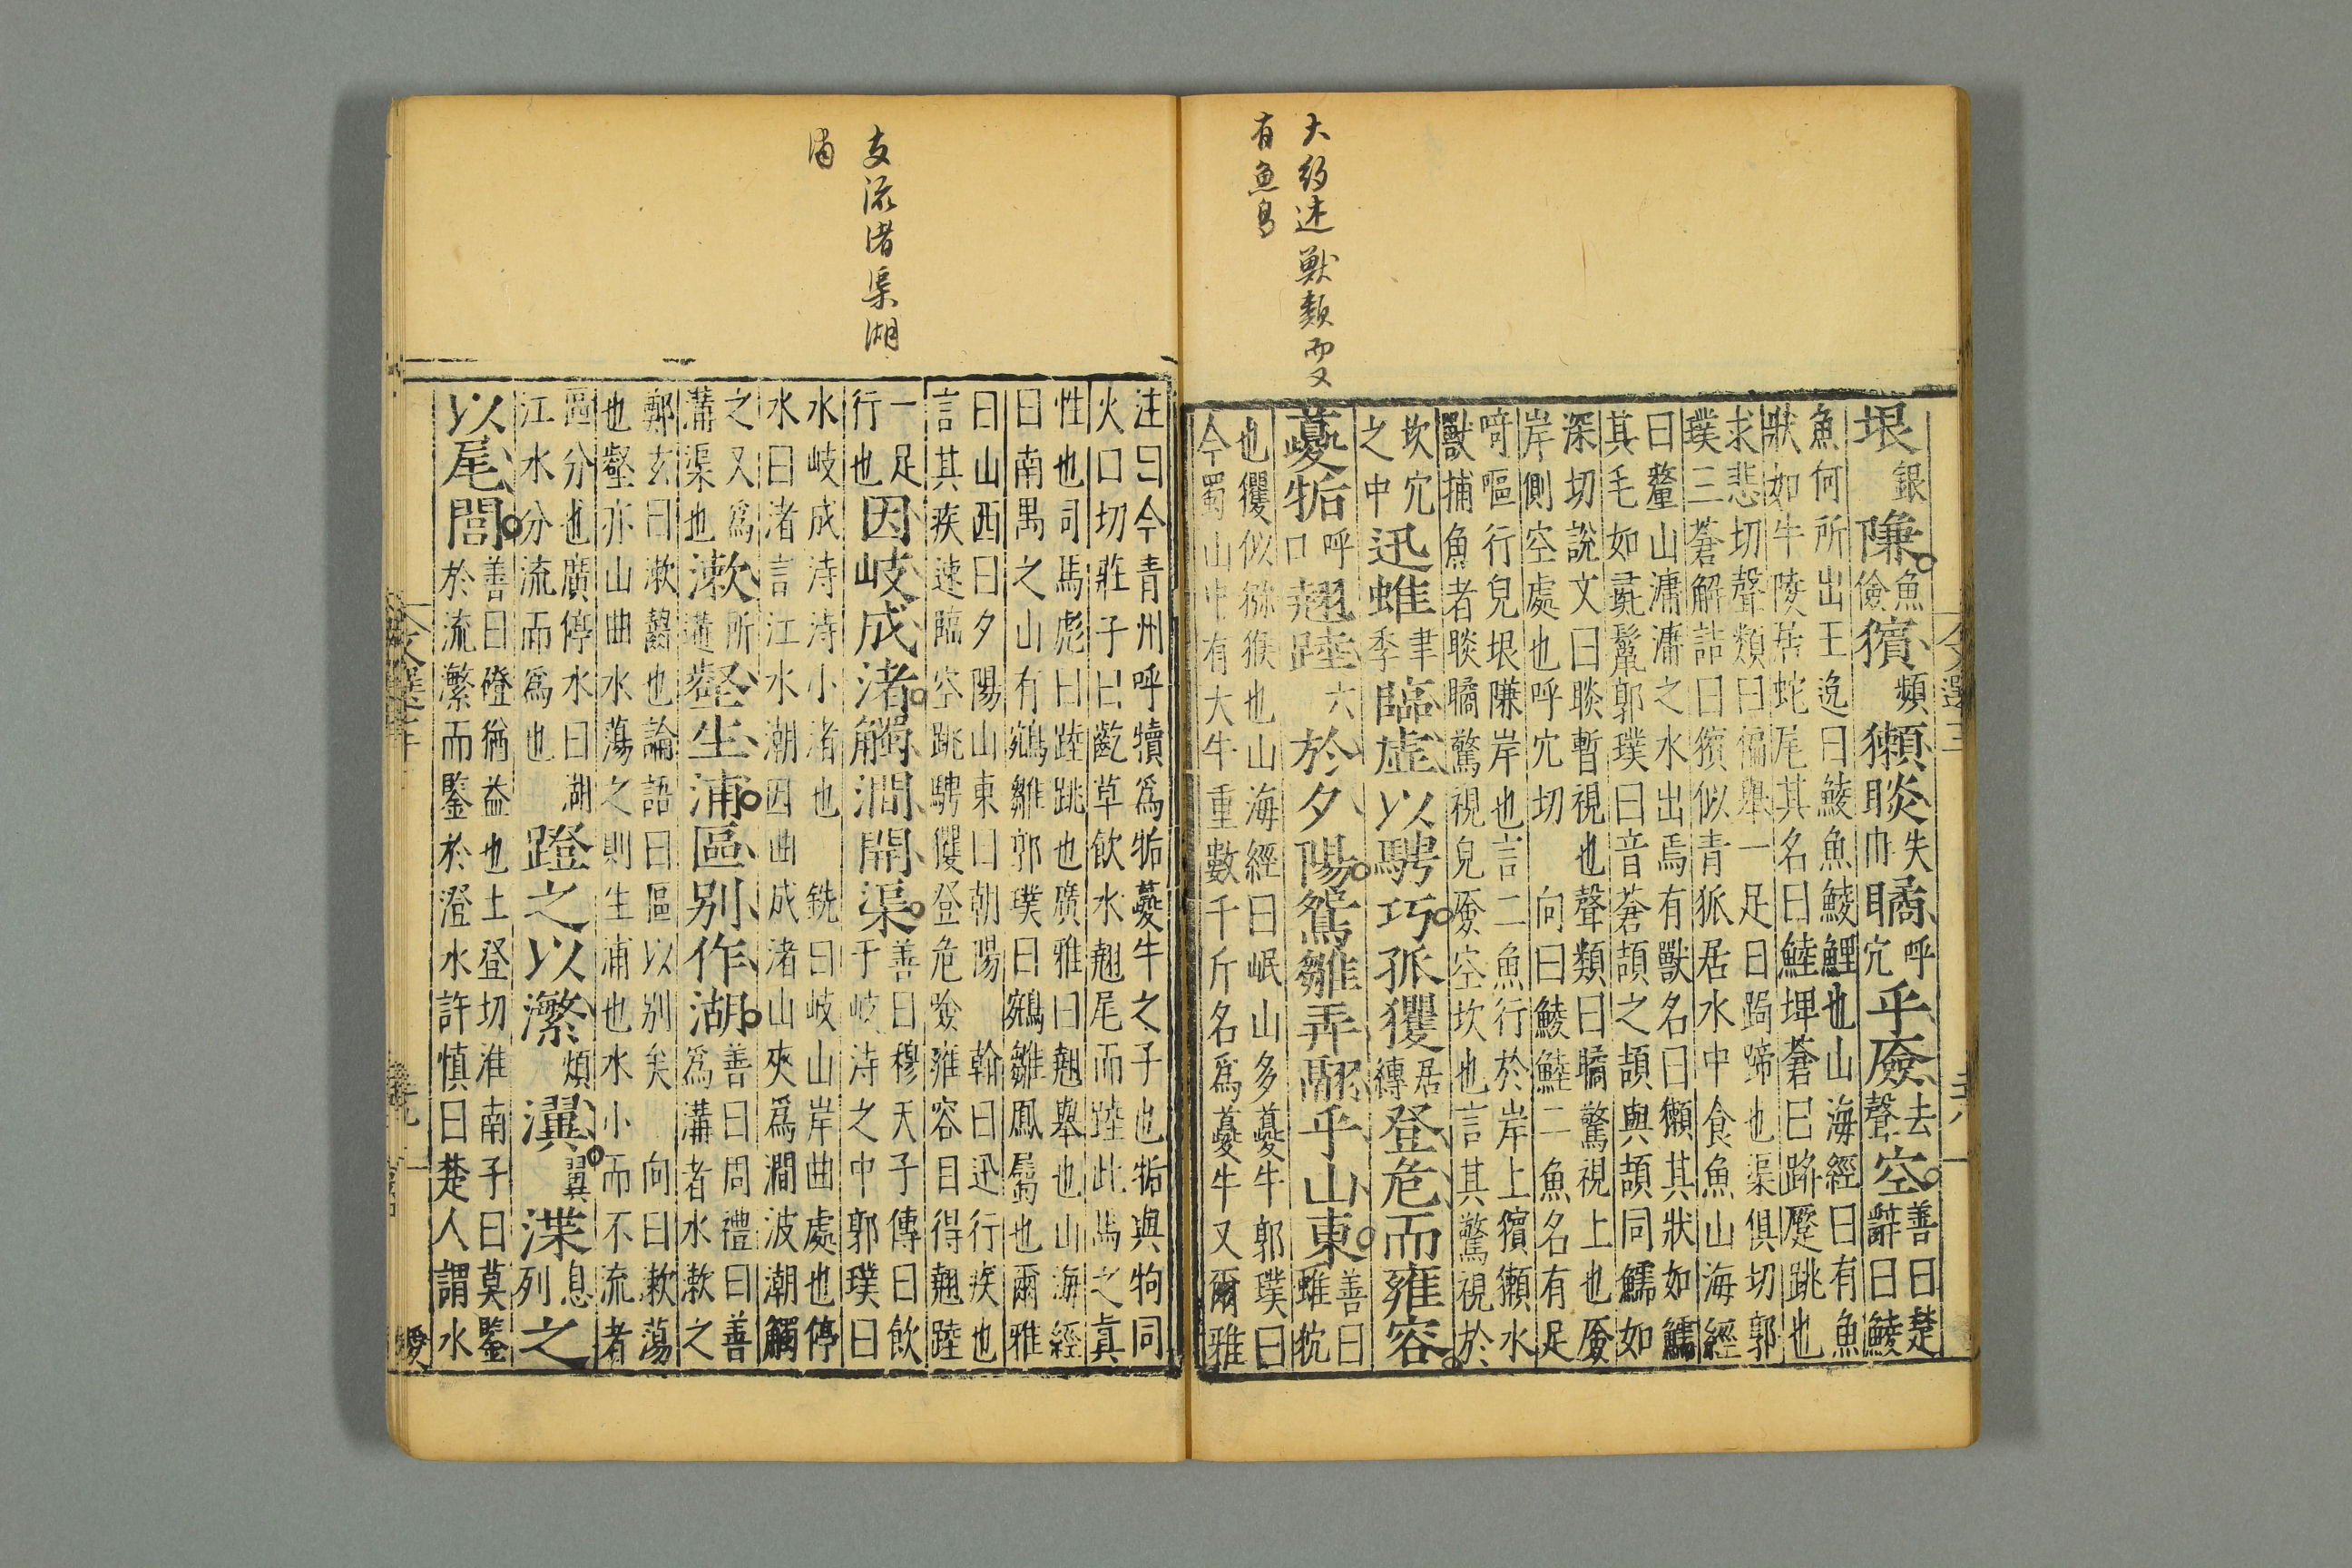 大約述獸類而又
有魚鳥
垠銀隒魚儉獱頻獺睒失冉瞲呼穴乎厱去聲空善曰楚辭曰鯪
魚何所出王逸曰鯪魚鯪鯉也山海經曰有魚
狀如牛陵居蛇尾其名曰鯥埤蒼曰踛蹷跳也
求悲切聲類曰偏舉一足曰跼蹄也渠俱切郭
璞三蒼解詁曰獱似青狐居水中食魚山海經
曰釐山滽滽之水出焉有獸名曰獺其狀如鱬
其毛如彘鬣郭璞曰音蒼頡之頡與頡同鱬如
深切說文曰睒暫視也聲類曰瞲驚視上也厱
岸側空處也呼穴切 向曰鯪鯥二魚名有足
嘔行皃垠隒岸也言二魚行於岸上獱獺水
獸捕魚者睒瞲驚視皃厱空坎也言其驚視於
坎穴之中迅蜼聿季臨虛以騁巧孤玃居縳登危而雍容
夔㸸呼口翹踛六於夕陽鴛雛弄翮乎山東善曰蜼狖
也玃似獼猴也山海經曰岷山多夔牛郭璞曰
今蜀山中有大牛重數千斤名為夔牛又爾雅
支流渚渠湖
浦
注曰今青州呼犢為㸸夔牛之子也㸸與物同
火口切莊子曰齕草飲水翹尾而踛此馬之真
性也司馬彪曰踛跳也廣雅曰翹舉也山海經
曰南禺之山有鵷雛郭璞曰鵷雛鳳屬也爾雅
曰山西曰夕陽山東曰朝陽 翰曰迅行疾也
言其疾速臨空跳騁玃登危險雍容自得翹踛
一足行也因岐成渚觸澗開渠善曰穆天子傳曰飲于岐洔之中郭璞曰
水岐成洔洔小渚也 銑曰岐山岸曲處也停
水曰渚言江水潮因曲成渚山夾為澗波潮觸
之又為溝渠也漱所遘壑生浦區別作湖善曰周禮曰善為溝者水漱之
鄭玄曰漱齧也論語曰區以別矣 向曰漱蕩
也壑亦山曲水蕩之則生浦也水小而不流者
區分也廣停水曰湖江水分流而為也蹬之以瀿煩瀷翼渫息列之
以尾閭善曰磴猶益也土登切淮南子曰莫鑒
於流瀿而鑒於澄水許慎曰楚人謂水